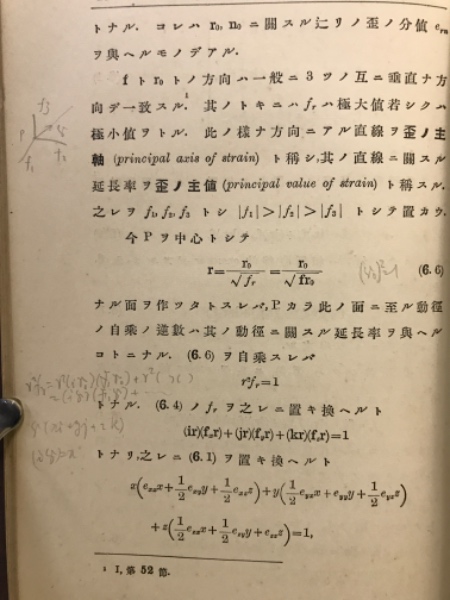 トナル. コレハ r₀, n₀ ニ關スルヒリノ歪ノ分値 eᵣₙ
ヲ與ヘルモノデアル.
f ト r₀ トノ方向ハ一般ニ 3 ツノ互ニ垂直ナ方
向デ一致スル.¹ 其ノトキニハ fᵣ ハ極大値若シクハ
極小値ヲトル. 此ノ樣ナ方向ニアル直線ヲ歪ノ主
軸 (principal axis of strain) ト稱シ,其ノ直線ニ關スル
延長率ヲ歪ノ主値 (principal value of strain) ト稱スル.
之レヲ f₁, f₂, f₃ トシ |f₁|>|f₂|>|f₃| トシテ置カウ.
今 P ヲ中心トシテ
r = r₀/√fᵣ = r₀/√fr₀ (6.6)
ナル面ヲ作ツタトスレバ, P カラ此ノ面ニ至ル動徑
ノ自乘ノ逆數ハ其ノ動徑ニ關スル延長率ヲ與ヘル
コトニナル. (6.6) ヲ自乘スレバ
r²fᵣ=1
トナル. (6.4) ノ fᵣ ヲ之レニ置キ換ヘルト
(ir)(fₓr)+(jr)(fᵧr)+(kr)(f_z r)=1
トナリ,之レニ (6.1) ヲ置キ換ヘルト
x(e_xx x + 1/2 e_xy y + 1/2 e_xz z) + y(1/2 e_yx x + e_yy y + 1/2 e_yz z)
+ z(1/2 e_zx x + 1/2 e_zy y + e_zz z) = 1,
¹ I, 第 52 節.
f₃
P
f₁
f₂